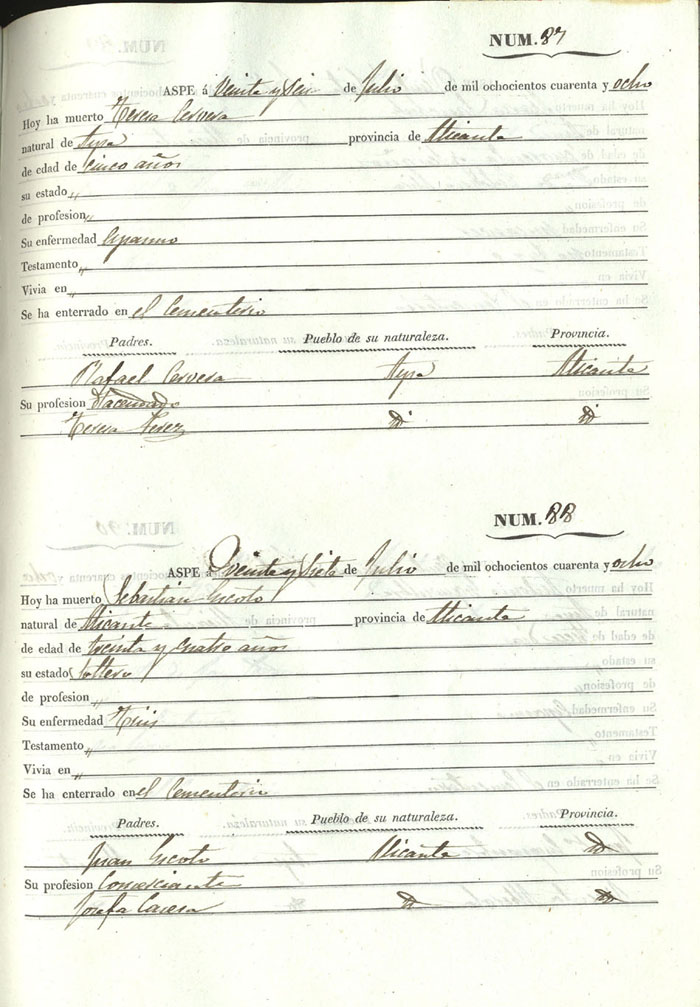 NUM. 87
ASPE á Veinte y Seis de Julio de mil ochocientos cuarenta y ocho
Hoy ha muerto Teresa Cervera
natural de Aspe provincia de Alicante
de edad de Cinco años
su estado „
de profesion „
Su enfermedad
Testamento „
Vivia en „
Se ha enterrado en el Cementerio
Padres. Pueblo de su naturaleza. Provincia.
Rafael Cervera Aspe Alicante
Su profesion Hacendado
Teresa Perez
NUM. 88
ASPE á Veinte y Siete de Julio de mil ochocientos cuarenta y ocho
Hoy ha muerto Sebastián
natural de Alicante provincia de Alicante
de edad de treinta y cuatro años
su estado Soltero
de profesion „
Su enfermedad Tisis
Testamento „
Vivia en „
Se ha enterrado en el Cementerio
Padres. Pueblo de su naturaleza. Provincia.
Juan Alicante
Su profesion Comerciante
Josefa